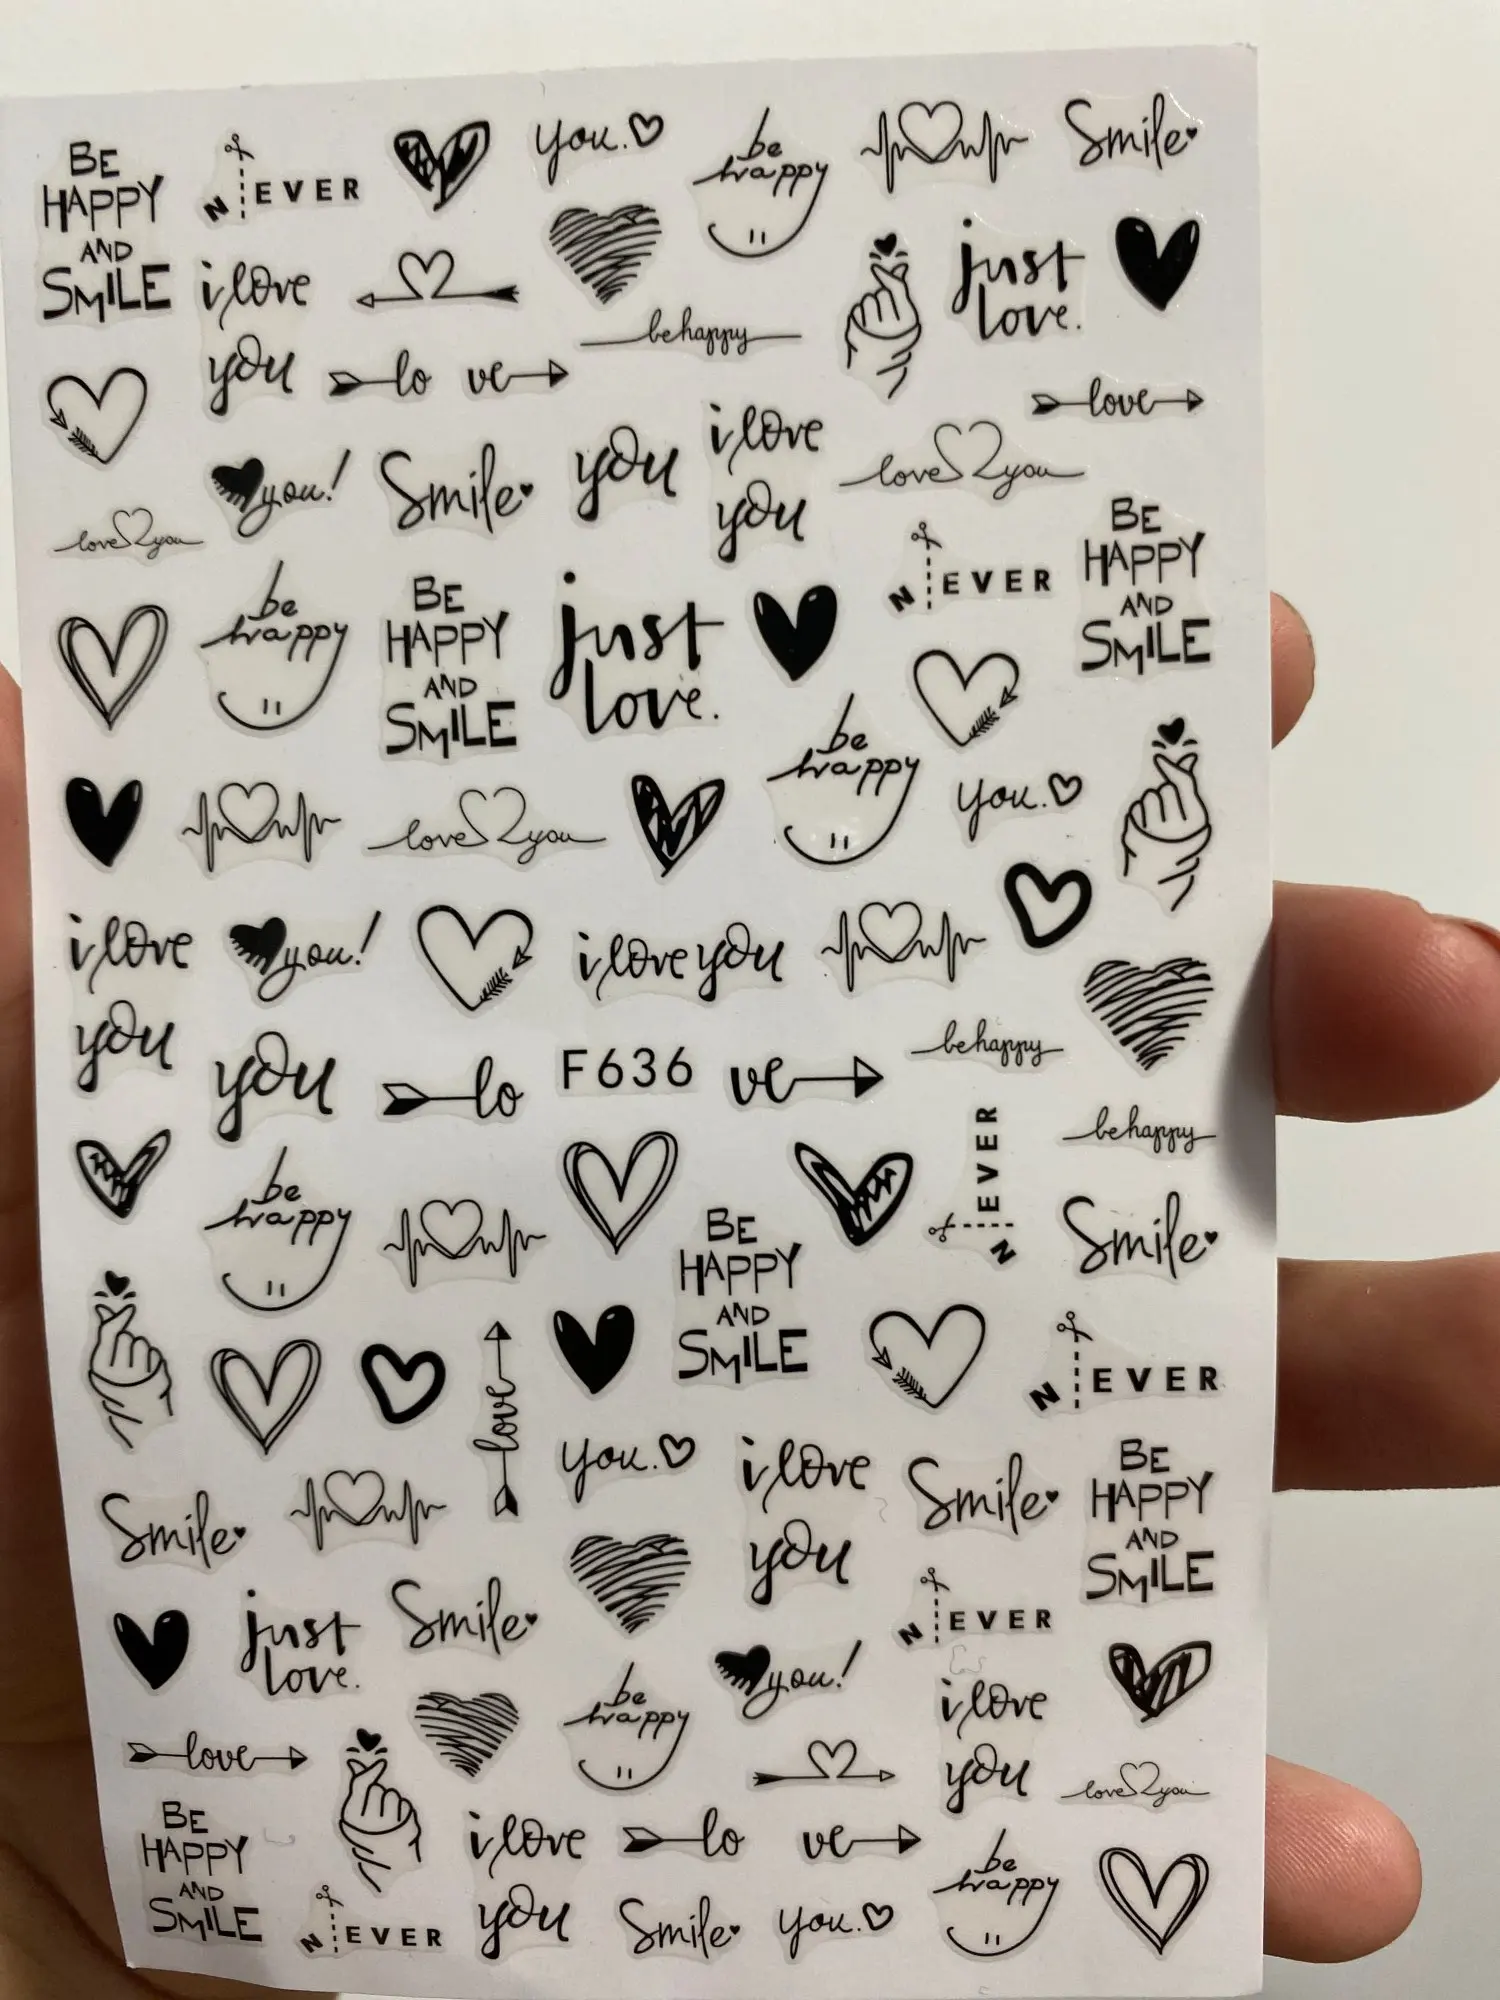 you.
be
happy
Smile
BE
HAPPY
AND
SMILE
N EVER
i love
you
just
love.
be happy
lo ve
love
you!
Smile
you
i love
you
love you
love you
be
happy
BE
HAPPY
AND
SMILE
just
love.
N EVER
BE
HAPPY
AND
SMILE
love you
be
happy
you.
i love
you
you!
i love you
you
lo
F636
ve
be happy
be happy
be
happy
BE
HAPPY
AND
SMILE
N EVER
Smile
N EVER
love
you.
i love
you
Smile
BE
HAPPY
AND
SMILE
Smile
just
love.
Smile
N EVER
be
happy
you!
i love
you
love
love you
BE
HAPPY
AND
SMILE
N EVER
i love
you
lo ve
Smile
you.
be
happy